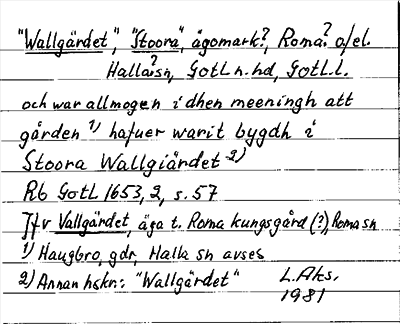 "Wallgärdet", "Stoora", ägomark?, Roma? o/el.
Halla? sn, Gotl.n.hd, Gotl.l.
och war allmogen i dhen meeningh att
gården 1) hafuer warit bygdh i
Stoora Wallgiärdet 2)
Rb Gotl 1653, 2, s. 57
Jfr Vallgärdet, äga t. Roma kungsgård (?), Roma sn
1) Haugbro, gdr, Halla sn avses
2) Annan hskr.: "Wallgärdet"
L. Aks.
1981